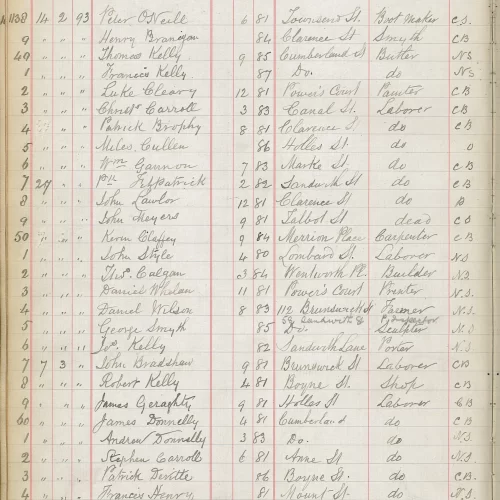 1138 14 2 93 Peter O'Neill 6 81 Townsend St. Boot Maker C.S.
9 " " " Henry Branigan 84 Clarence St. Smyth C B
40 " " " Thomas Kelly 9 85 Cumberland St Butler N.S.
1 " " " Francis Kelly 87 Do. do N.S.
2 " " " Luke Cleary 12 81 Power's Court Painter C B
3 " " " Christr Carroll 3 83 Canal St. Laborer C B
4 " " " Patrick Brophy 8 81 Clarence St do C B
5 " " " Miles Cullen 86 Holles St. do
6 " " " Wm Gannon 7 83 Mark St. do C B
7 24 " " Fitzpatrick 2 82 Sandwith St do C B
8 " " " John Lawlor 12 81 Clarence St do
9 " " " John Meyers 9 81 Talbot St dead
50 " " " Kevin Claffey 9 84 Merrion Place Carpenter C B
1 " " " John Style 4 80 Lombard St. Laborer N.S
2 " " " Thos. Calgan 3 84 Wentworth Pl. Builder N.S
3 " " " Daniel Whelan 11 81 Power's Court Printer N.S.
4 " " " Daniel Wilson 8 83 112 Brunswick St Farmer N.S.
5 " " " George Smyth 85 Do. Sculptor N.S.
6 " " " Jos. Kelly 82 Sandwith Lane Porter N.S
7 7 3 " John Bradshaw 9 81 Brunswick St Laborer C B
8 " " " Robert Kelly 4 81 Boyne St. Shop C B
9 " " " James Geraghty 9 81 Holles St Laborer C B
60 " " " James Donnelly 4 81 Cumberland do C B
1 " " " Andrew Donnelly 3 83 Do. do N.S.
2 " " " Stephen Carroll 6 81 Anne St. do N.S.
3 " " " Patrick 86 Boyne St. do C.B.
4 " " " Francis Henry 81 Mount St. do N.S.